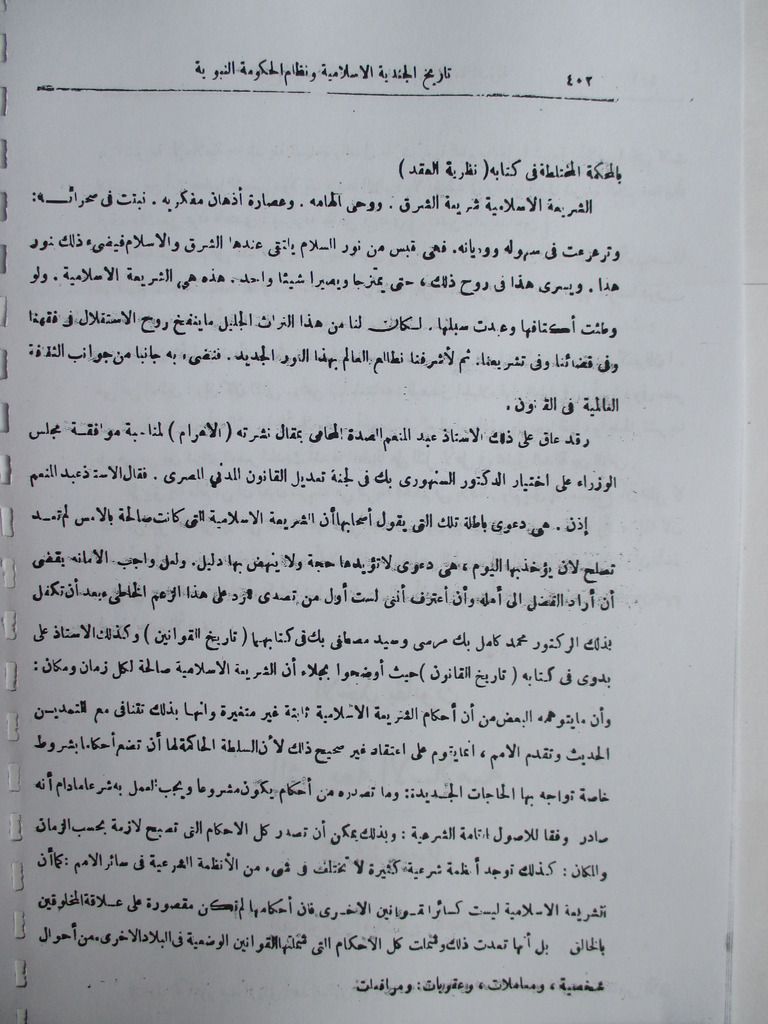 ٤٠٢ تاريخ الجندية الاسلامية ونظام الحكومة النبوية
بالمحكمة المختلطة فى كتابه ( نظرية العقد )
الشريعة الاسلامية شريعة الشرق . ووحى الهامه . وعصارة أذهان مفكريه . نبتت فى صحرائه :
وترعرعت فى سهوله ووديانه. فهى قبس من نور السلام يلتقى عندها الشرق والاسلام فيضىء ذلك نور
هذا . ويسرى هذا فى روح ذلك ، حتى يمتزجا ويصيرا شيئا واحدا . هذه هى الشريعة الاسلامية . ولو
وطئت أكنافها وعبدت سبلها . لكان لنا من هذا التراث الجليل ماينفخ روح الاستقلال فى فقهنا
وفى قضائنا وفى تشريعنا. ثم لأشرفنا نطالع العالم بهذا النور الجديد . فنضىء به جانبا من جوانب الثقافة
العالمية فى القانون .
وقد علق على ذلك الاستاذ عبد المنعم الصدة المحامى بمقال نشرته ( الاهرام ) لمناسبة موافقة مجلس
الوزراء على اختيار الدكتور السنهورى بك فى لجنة تعديل القانون المدنى المصرى . فقال الاستاذ عبد المنعم
إذن . هى دعوى باطلة تلك التى يقول أصحابها أن الشريعة الاسلامية التى كانت صالحة بالامس لم تعد
تصلح لان يؤخذ بها اليوم ، هى دعوى لا تؤيدها حجة ولا ينهض بها دليل . ولعل واجب الامانه يقضى
أن أراد الفضل الى أهله وأن أعترف أننى لست أول من تصدى للرد على هذا الزعم الخاطىء بعد أن تكفل
بذلك الدكتور محمد كامل بك مرسى وسيد مصطفى بك فى كتابهما ( تاريخ القوانين ) وكذلك الاستاذ على
بدوى فى كتابه ( تاريخ القانون ) حيث أوضحوا بجلاء أن الشريعة الاسلامية صالحة لكل زمان ومكان :
وأن مايتوهمه البعض من أن أحكام الشريعة الاسلامية ثابتة غير متغيرة وانها بذلك تتنافى مع التمدين
الحديث وتقدم الامم ، انما يقوم على اعتقاد غير صحيح ذلك لأن السلطة الحاكمة لها أن تضع أحكاما بشروط
خاصة تواجه بها الحاجات الجديدة: وما تصدره من أحكام يكون مشروعا ويجب العمل به شرعا مادام أنه
صادر وفقا للاصول العامة الشرعية : وبذلك يمكن أن تصدر كل الاحكام التى تصبح لازمة بحسب الزمان
والمكان : كذلك توجد أنظمة شرعية كثيرة لا تختلف فى شىء من الأنظمة الشرعية فى سائر الامم : كما أن
الشريعة الاسلامية ليست كسائر القوانين الاخرى فان أحكامها لم تكن مقصورة على علاقة المخلوقين
بالخالق بل أنها تعدت ذلك وشملت كل الاحكام التى شملتها القوانين الوضعية فى البلاد الاخرى من أحوال
شخصية ، ومعاملات ، وعقوبات : ومرافعات